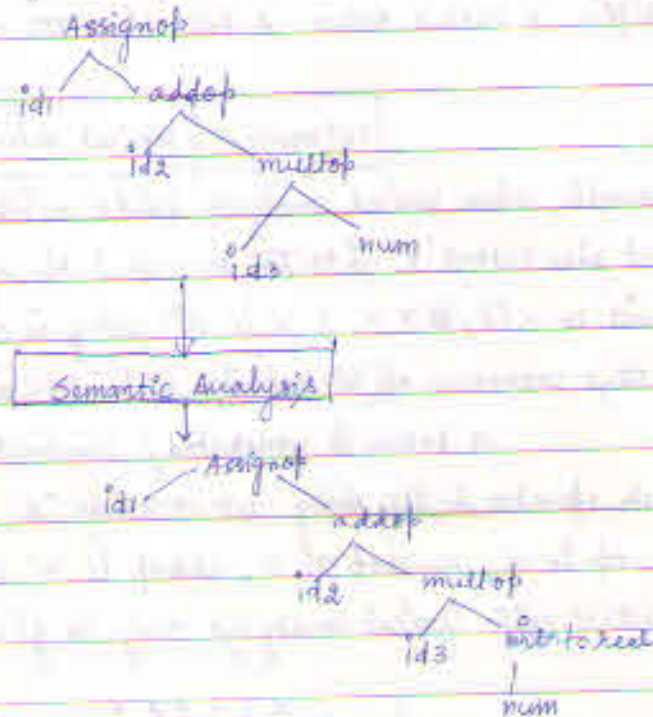 Assignop
id1 addop
id2 multop
id3 num
Semantic Analysis
Assignop
id1 addop
id2 multop
id3 int to real
num